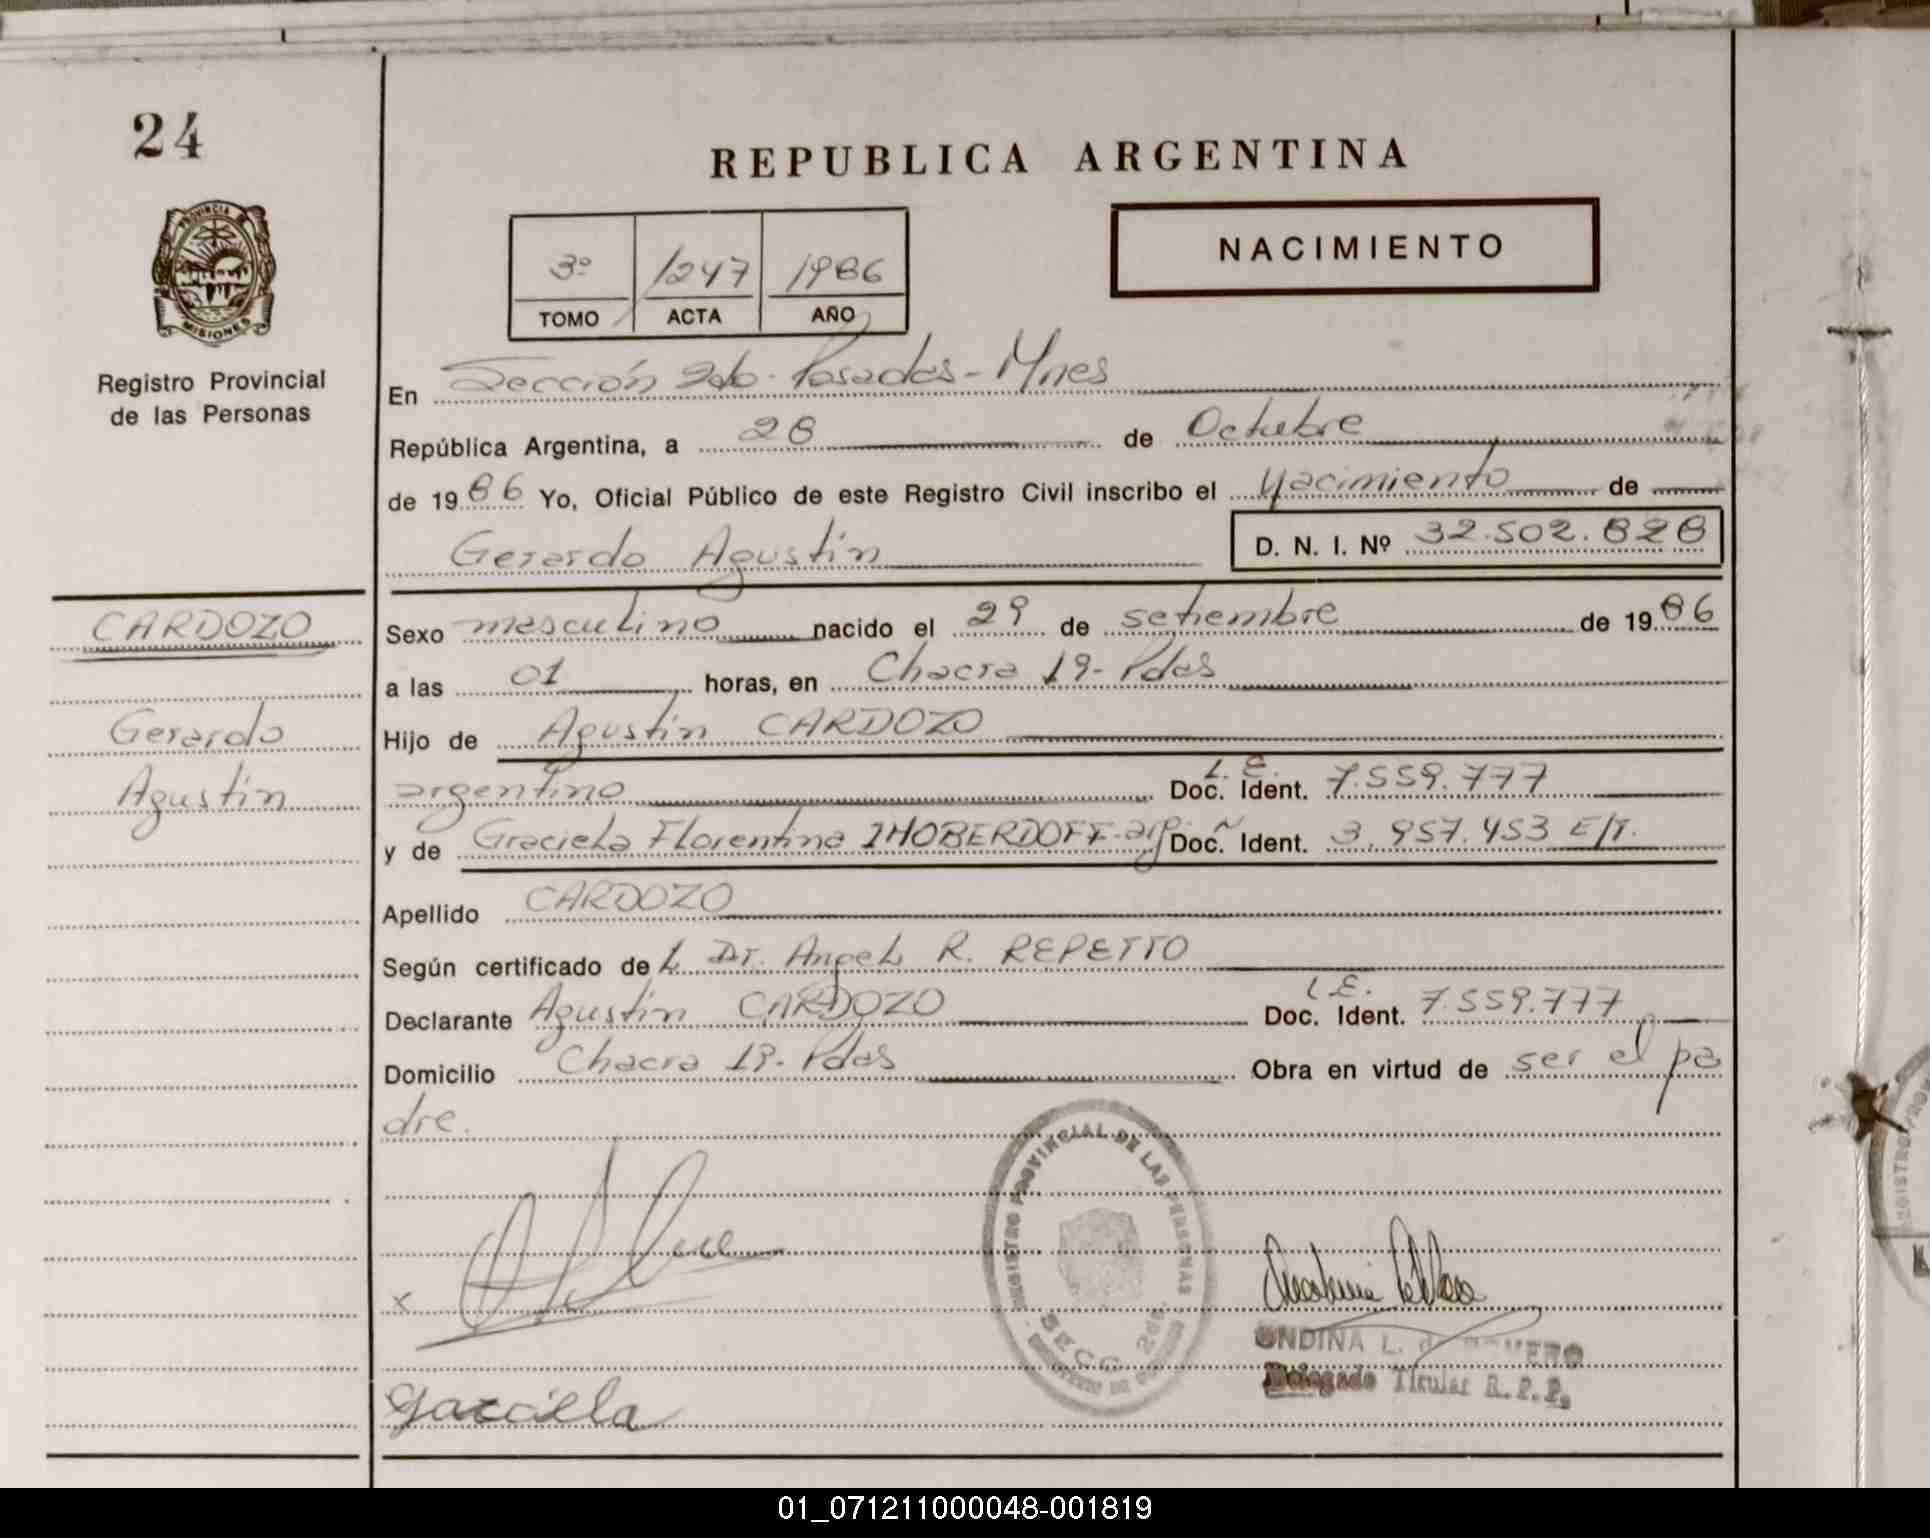 24
REPUBLICA ARGENTINA
PROVINCIA DE
MISIONES
Registro Provincial
de las Personas
3º 1247 1986
TOMO ACTA AÑO
NACIMIENTO
En Sección 2da. Posadas - Mnes
República Argentina, a 28 de Octubre
de 1986 Yo, Oficial Público de este Registro Civil inscribo el Nacimiento de
Gerardo Agustín D. N. I. Nº 32.502.828
CARDOZO
Gerardo
Agustín
Sexo masculino nacido el 29 de setiembre de 1986
a las 01 horas, en Chacra 19 - Pdas
Hijo de Agustín CARDOZO
argentino L. E. Doc. Ident. 7.559.777
y de Graciela Florentina IHOBERDOFF - arg Doc. Ident. 3.957.453 E/T.
Apellido CARDOZO
Según certificado del Dr. Angel R. REPETTO
Declarante Agustín CARDOZO L.E. Doc. Ident. 7.559.777
Domicilio Chacra 19 - Pdas Obra en virtud de ser el pa
dre.
REGISTRO PROVINCIAL DE LAS PERSONAS
SECC. 2da.
x
ONDINA L. de ROMERO
Delegado Titular R. P. P.
01_071211000048-001819